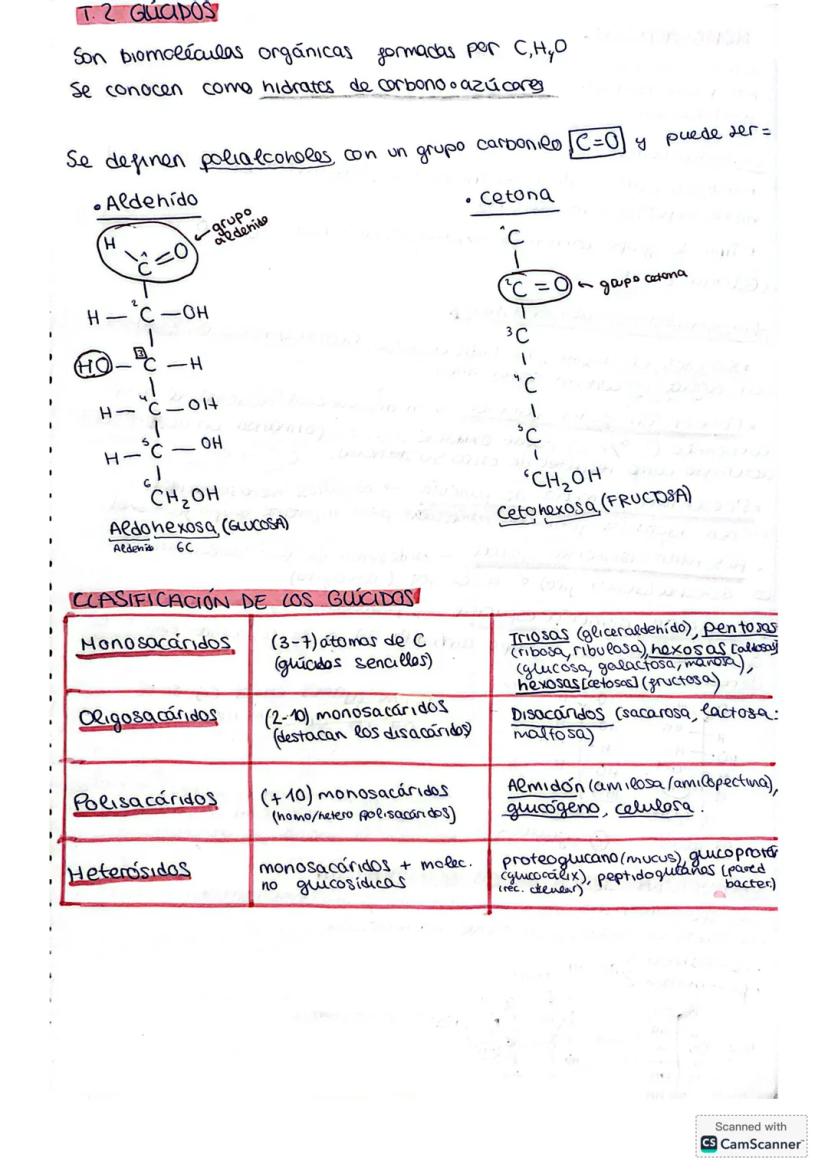 T.2 GLÚCIDOS
Son biomoléculas orgánicas formadas por C,H,O
Se conocen como hidratos de carbono o azúcares
Se definen polialcoholes con un grupo carbonilo C=O y puede ser =
• Aldehído
grupo
aldehido
H
1C=O
H — 2C — OH
HO — 3C — H
H — 4C — OH
H — 5C — OH
6CH2OH
Aldohexosa (GLUCOSA)
Aldehido 6C
• Cetona
1C
2C = O ← grupo cetona
3C
4C
5C
6CH2OH
Cetohexosa (FRUCTOSA)
CLASIFICACIÓN DE LOS GLÚCIDOS
Monosacáridos
(3-7) átomos de C
(glúcidos sencillos)
Triosas (gliceraldehído), pentosas
(ribosa, ribulosa) hexosas [aldosas]
(glucosa, galactosa, manosa),
hexosas [cetosas] (fructosa)
Oligosacáridos
(2-10) monosacáridos
(destacan los disacáridos)
Disacáridos (sacarosa, lactosa:
maltosa)
Polisacáridos
(+10) monosacáridos
(homo/hetero polisacáridos)
Almidón (amilosa/amilopectina),
glucógeno, celulosa.
Heterósidos
monosacáridos + molec.
no glucosídicas
proteoglucano (mucus), glucoprot
(glucocálix), peptidoglucanos (pared
(rec. celular) bacter.)
Scanned with
CS CamScanner